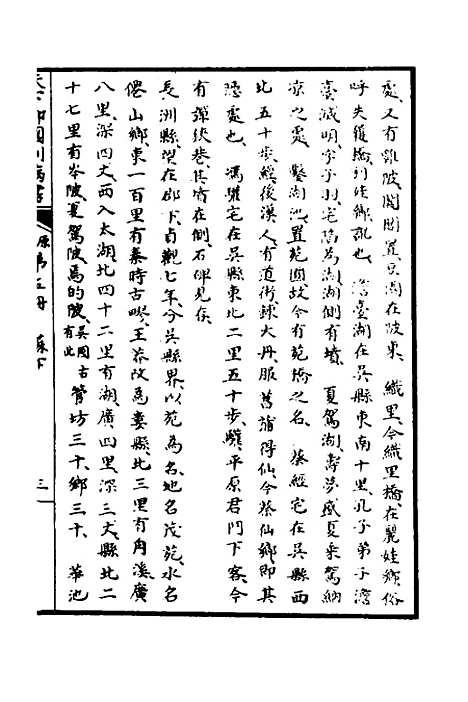 處又有雞陂闔閭置豆園在陂東　織里今織里橋在麗娃鄉俗
呼失履橋利娃鄉訛也　澹臺湖在吳縣東南十里孔子弟子澹
臺滅明字子羽宅陷為湖湖側有墳　夏駕湖壽夢盛夏乘駕納
涼之處鑿湖池置苑囿故今有苑橋之名　蔡經宅在吳縣西
北五十步經後漢人有道術鍊大丹服菖蒲得仙今蔡仙鄉即其
隱處也　馮驩宅在吳縣東北二里五十步驩平原君門下客今
有彈鋏巷其墳在側石碑見存
長洲縣望在郡下貞觀七年分吳縣界以苑為名地名茂苑水名
僊山鄉東一百里有秦時古疁王莽改為婁縣北三里有角溪廣
八里深四丈西入太湖北四十二里有湖廣四里深三丈縣北二
十七里有岑陂夏駕陂馬的陂吳國有此古管坊三十鄉三十　華池
天下郡國利病書
原第五冊　蘇下
三